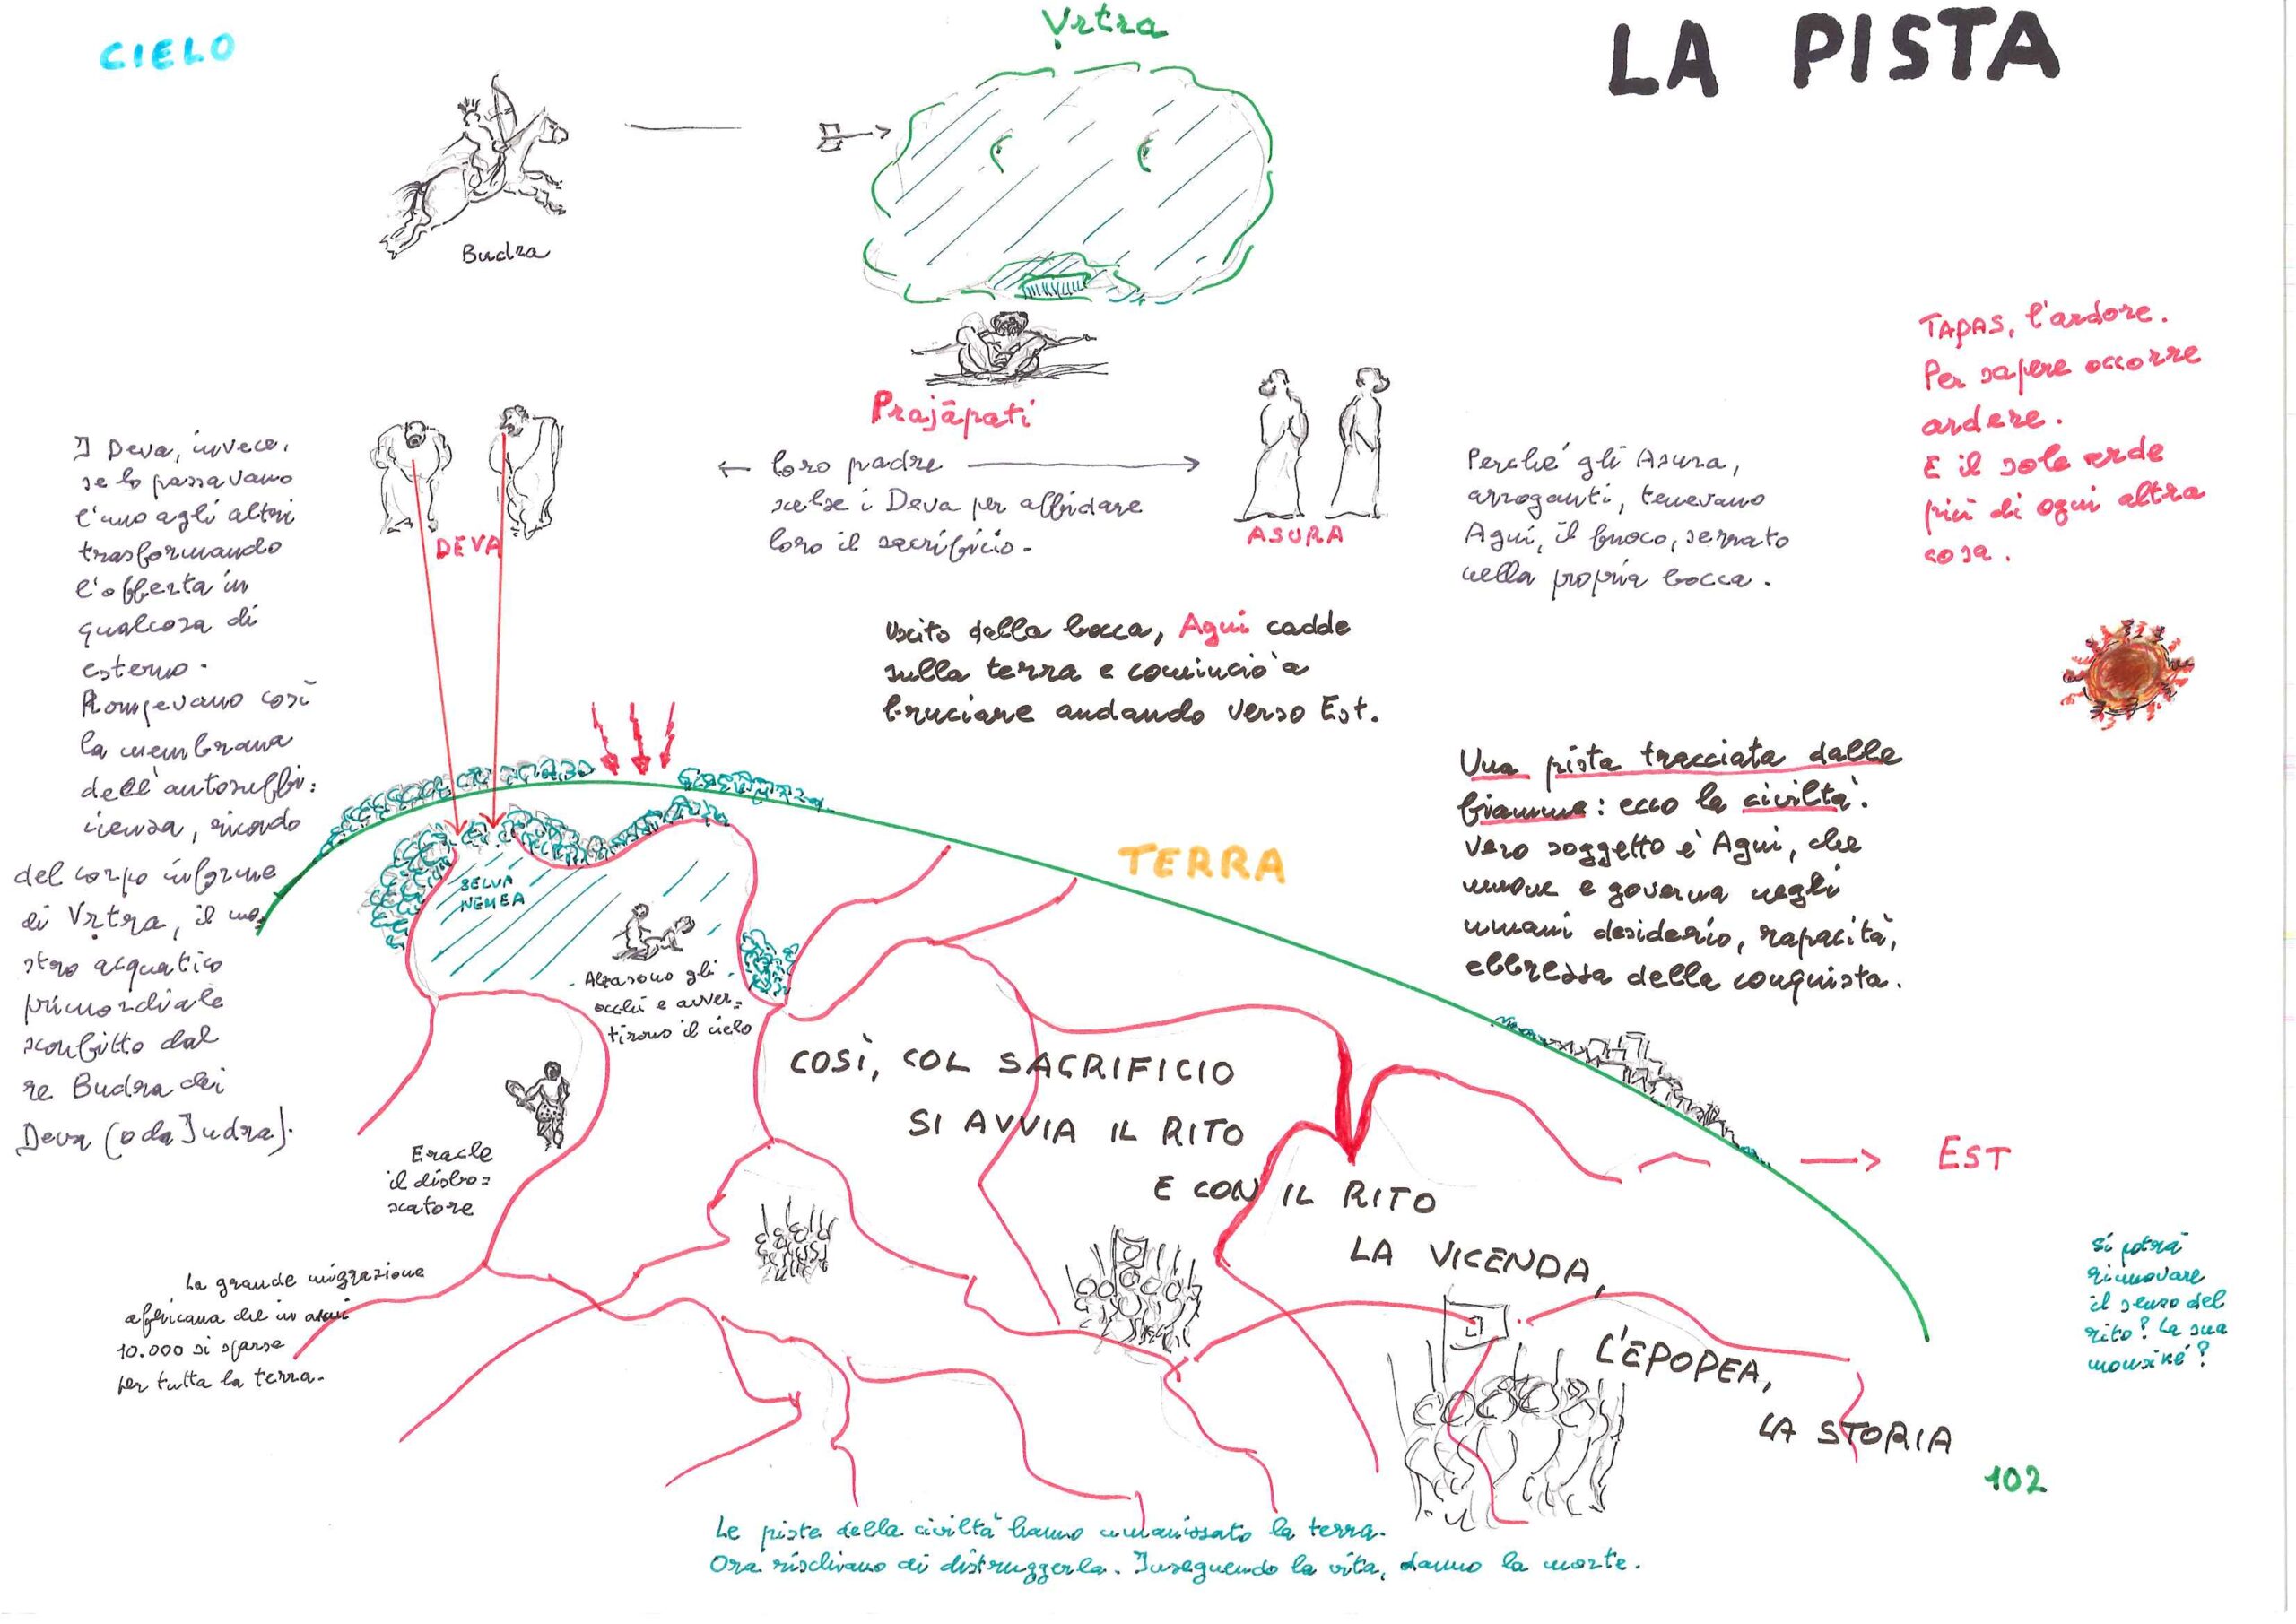 CIELO
Vṛtra
LA PISTA
Budra
TAPAS, l'ardore.
Per sapere occorre
ardere.
E il sole arde
più di ogni altra
cosa.
Prajāpati
← loro padre →
scelse i Deva per affidare
loro il sacrificio.
DEVA
ASURA
I Deva, invece,
se lo passavano
l'uno agli altri
trasformando
l'offerta in
qualcosa di
esterno.
Rompevano così
la membrana
dell'autosuffi:
cienza, ricordo
del corpo informe
di Vṛtra, il mo
stro acquatico
primordiale
sconfitto dal
re Budra dei
Deva (o da Indra).
Perché gli Asura,
arroganti, tenevano
Agni, il fuoco, serrato
nella propria bocca.
Uscito dalla bocca, Agni cadde
sulla terra e cominciò a
bruciare andando verso Est.
Una pista tracciata dalle
fiamme: ecco la civiltà.
Vero soggetto è Agni, che
muove e governa negli
umani desiderio, rapacità,
ebbrezza della conquista.
TERRA
SELVA
NEMEA
Alzarono gli
occhi e avver=
tirono il cielo
Eracle
il disbo=
scatore
COSÌ, COL SACRIFICIO
SI AVVIA IL RITO
E CON IL RITO
LA VICENDA,
L'EPOPEA,
LA STORIA
→ EST
La grande migrazione
africana che in anni
10.000 si sparse
per tutta la terra.
Si potrà
rinnovare
il senso del
rito? La sua
mousiké?
102
Le piste della civiltà hanno umanizzato la terra.
Ora rischiano di distruggerla. Inseguendo la vita, danno la morte.